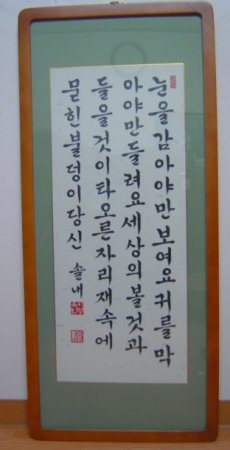 눈을감아야만보여요귀를막
아야만들려요세상의볼것과
들을것이타오른자리재속에
묻힌불덩이당신 솔내